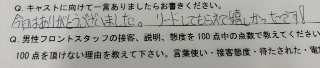 Q. キャストに向けて一言ありましたらお書きください。
今日はありがとうございました。 リードしてもらえて嬉しかったです!
Q. 男性フロントスタッフの接客、説明、態度を100点中の点数で教えてください
100点を頂けない理由を教えて下さい。言葉使い・接客態度・待たされた・電